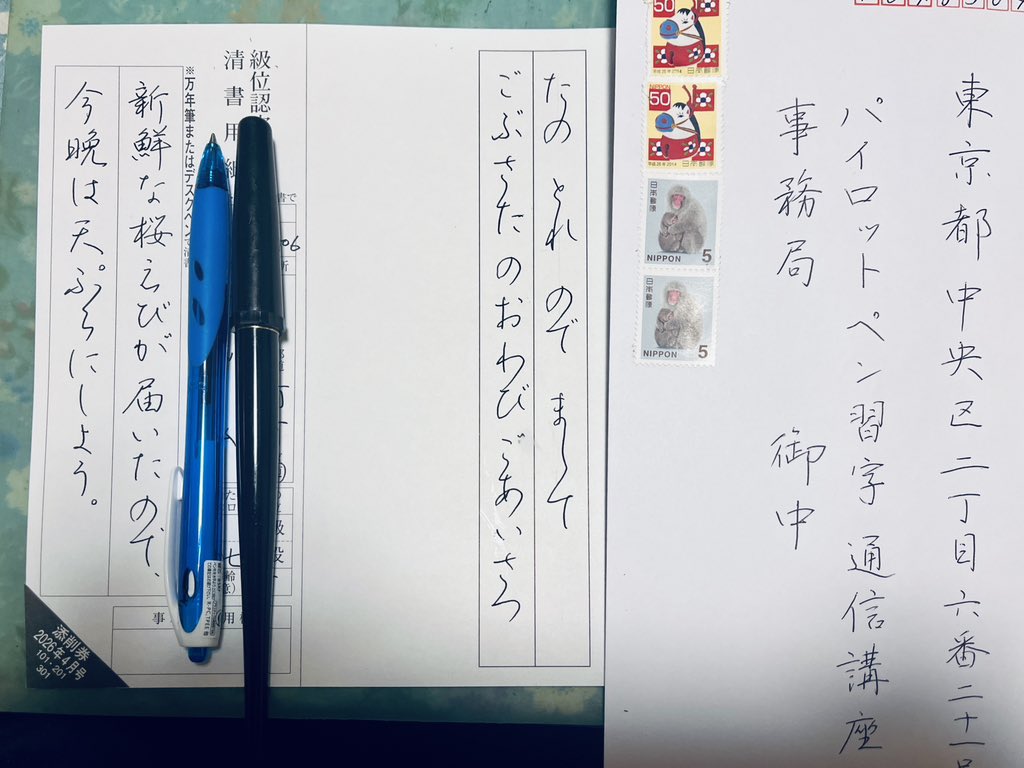 東京都中央区二丁目六番二十一号
パイロットペン習字通信講座
事務局 御中
50
平成26年 2014 日本郵便
50
平成26年 2014 日本郵便
日本郵便
NIPPON 5
日本郵便
NIPPON 5
たの とれ ので まして
ごぶさたのおわびごあいさつ
級位認定
清書用紙
※万年筆またはデスクペンで清書
新鮮な桜えびが届いたので、
今晩は天ぷらにしよう。
添削券
2026年4月号
101・201
301